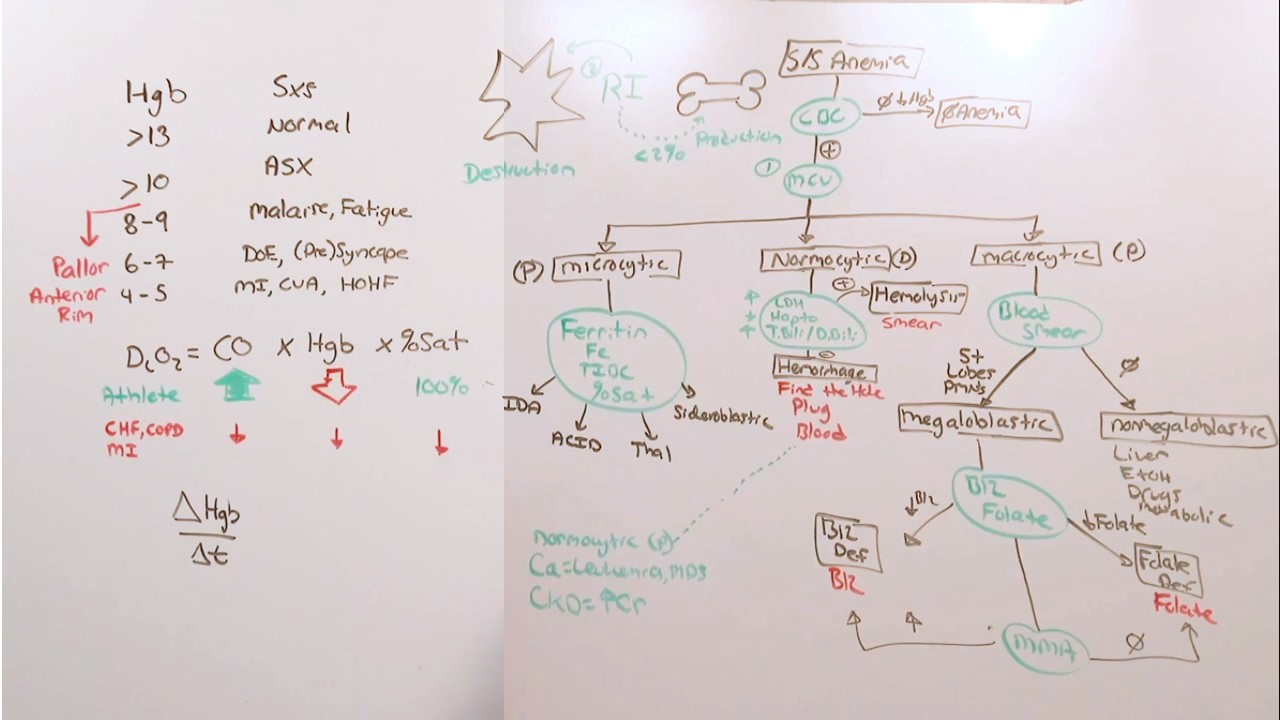 Hgb Sxs
>13 Normal
>10 ASX
8-9 Malaise, Fatigue
6-7 DoE, (Pre)Syncope
4-5 MI, CVA, HOHF
Pallor
Anterior
Rim
DₑO₂ = CO x Hgb x %Sat
Athlete 100%
CHF, COPD
MI
ΔHgb
Δt
Destruction
② RI
<2% Production
S/S Anemia
CBC
Ø↓Hgb
ØAnemia
+
① MCV
(P) microcytic
Normocytic (D)
macrocytic (P)
Ferritin
Fe
TIBC
%Sat
IDA
ACID
Thal
Sideroblastic
↑ LDH
↓ Hapto
↑ T.Bili/D.Bili
+
Hemolysis
Smear
-
Hemorrhage
Find the Hole
Plug
Blood
Normocytic (P)
Ca=Leukemia, MDS
CKD=↑Cr
Blood
Smear
5+
Lobes
PMNs
Ø
megaloblastic
nonmegaloblastic
Liver
EtOH
Drugs
metabolic
B12
Folate
↓B12
↓Folate
B12
Def
B12
Folate
Def
Folate
MMA
↑
Ø